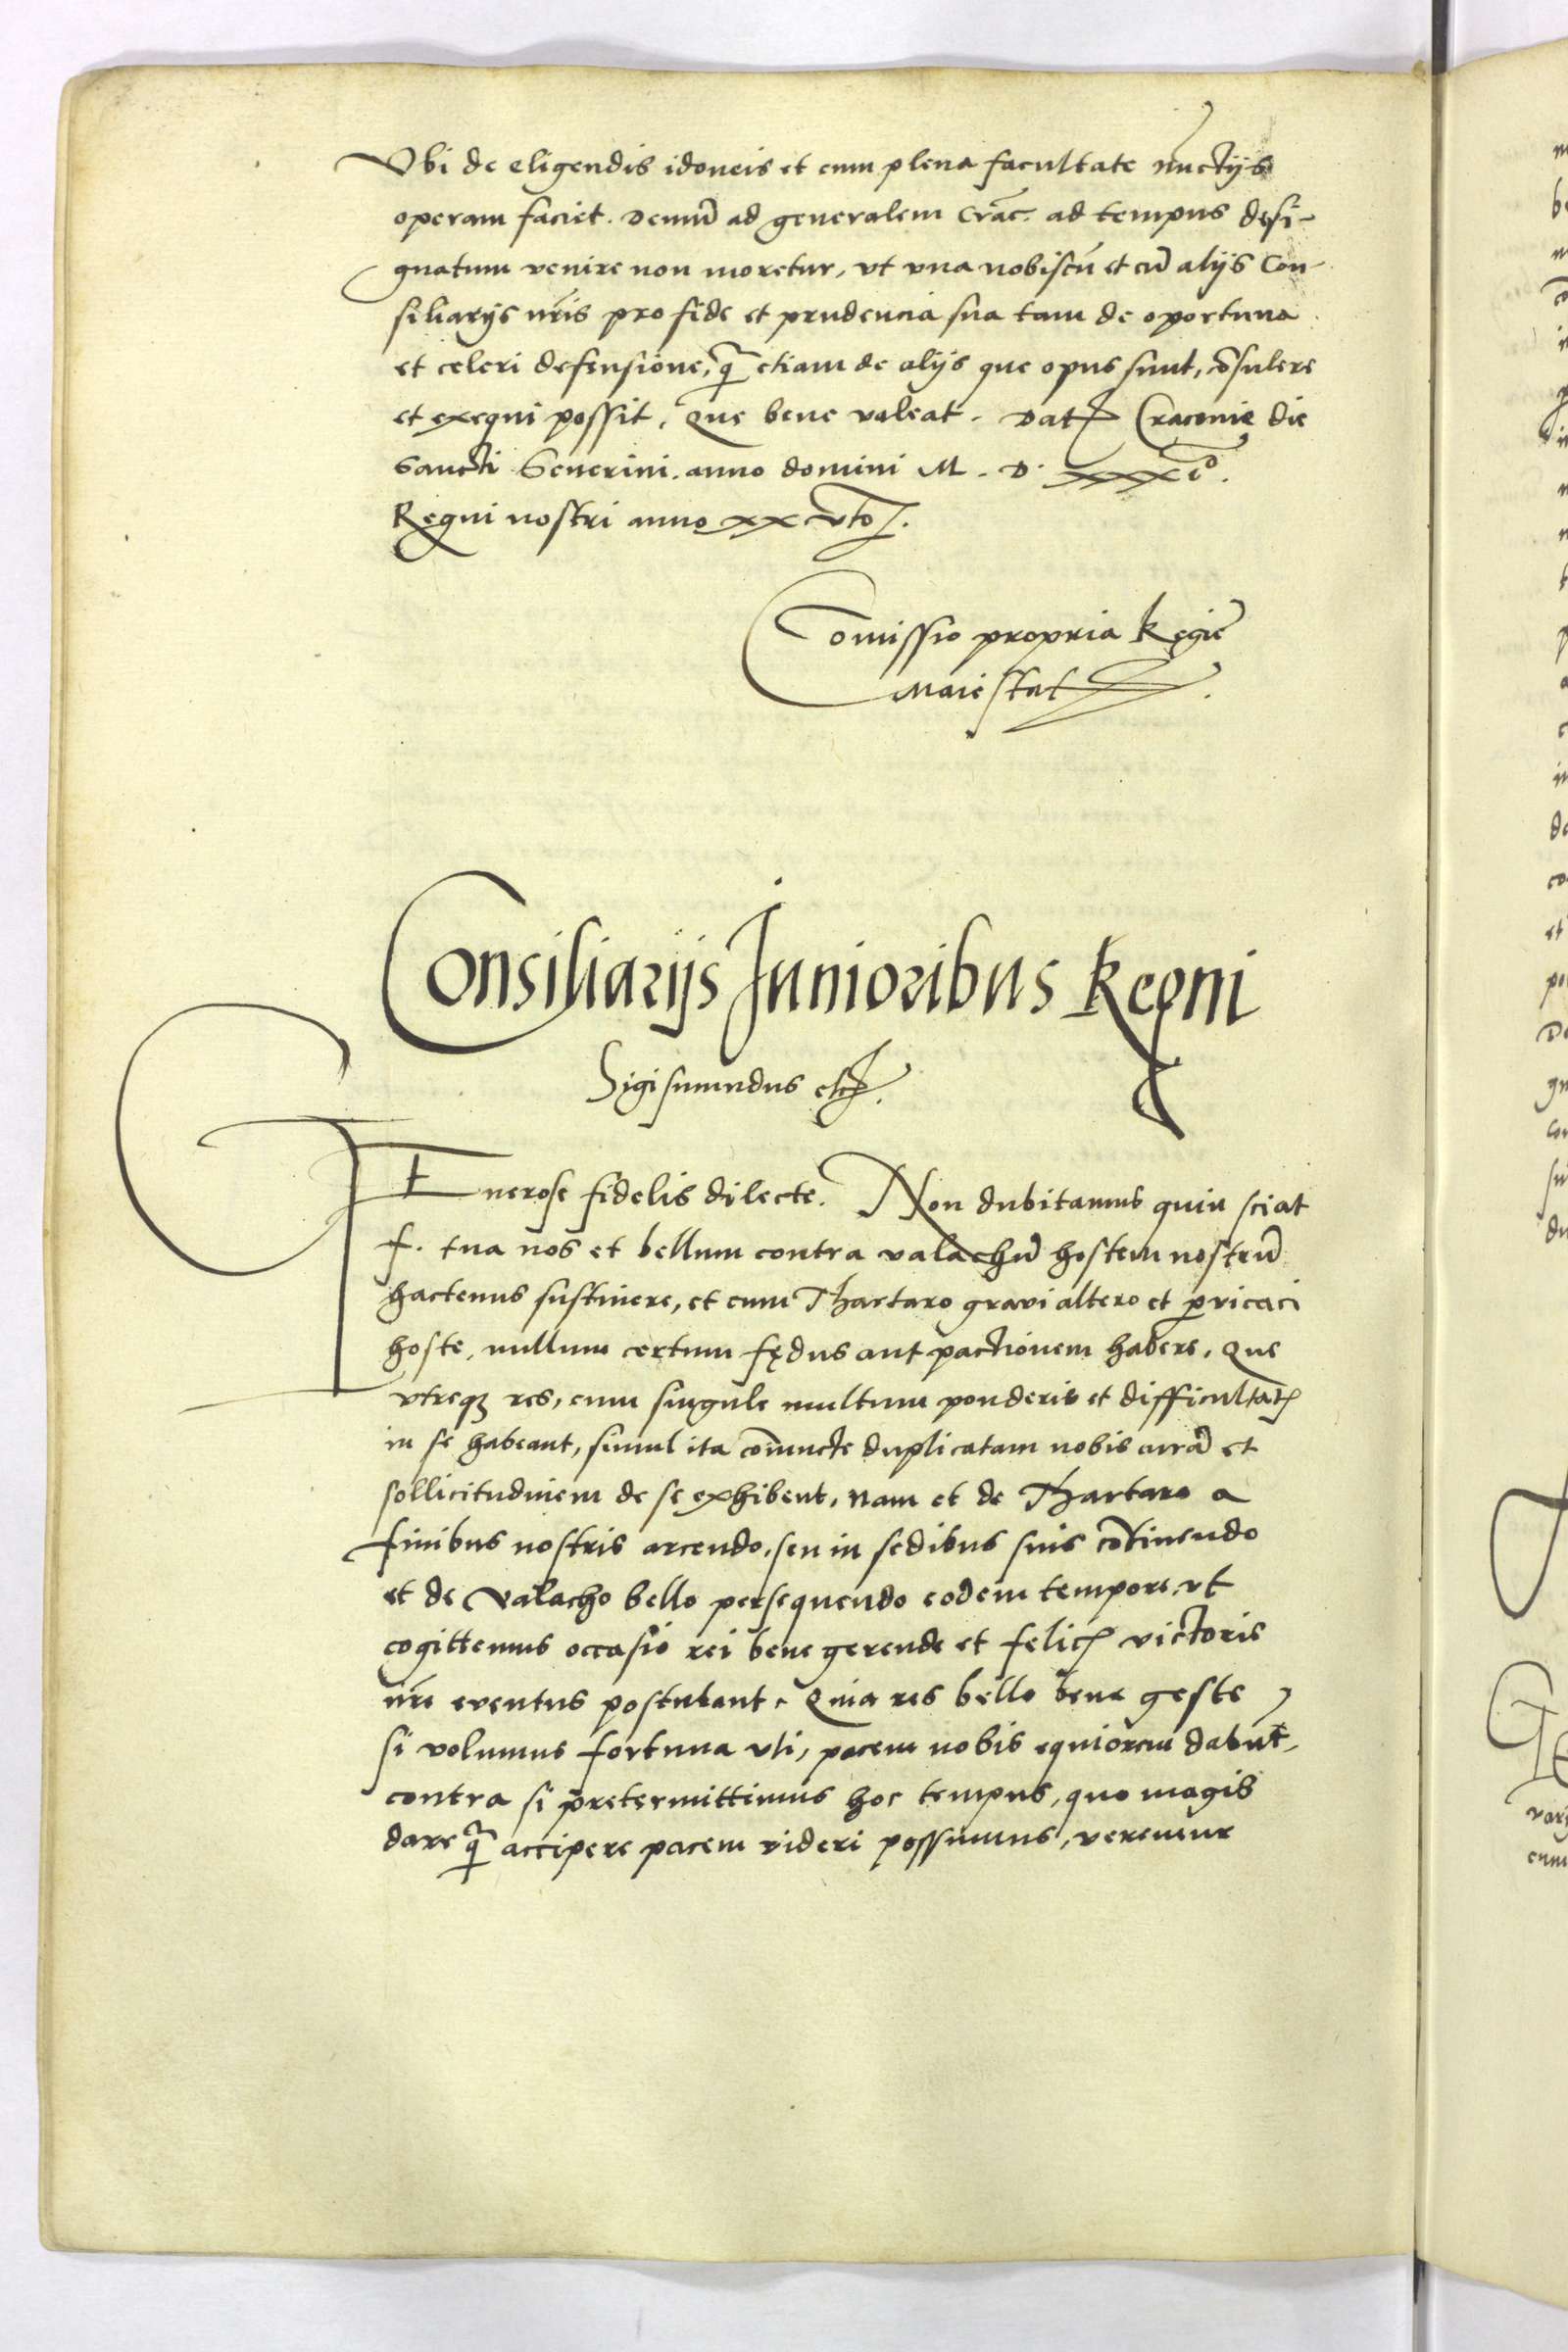 Vbi de eligendis idoneis et cum plena facultate nūctijs
operam faciet. Demū ad generalem Crac̄. ad tempus desi-
gnatum venire non moretur, vt vna nobiscū et cū alijs Con-
siliarijs nr̄is pro fide et prudencia sua tam de oportuna
et celeri defensione, q̄ etiam de alijs que opus sunt, cōsulere
et exequi possit, Que bene valeat. Dat̄ Cracouie die
Sancti Seuerini. anno domini M. D. xxxi°.
Regni nostri anno xx vto.
Comissio propria Regie
Maiestat
Consiliarijs Iunioribus Regni
Sigismundus etc.
GEnerose fidelis dilecte. Non dubitamus quin sciat
f. tua nos et bellum contra valachū hostem nostrū
hactenus sustinere, et cum Thartaro gravi altero et pervicaci
hoste, nullum certum fędus aut pactionem habere, Que
vtreqꝫ res, cum singule multum ponderis et difficultat̄
in se habeant, simul ita cōiuncte duplicatam nobis curā et
sollicitudinem de se exhibent, Nam et de Thartaro a
finibus nostris arcendo, seu in sedibus suis cōtinendo
et de Valacho bello persequendo eodem tempore, vt
cogittemus occasio rei bene gerende et felic̄ victorie
nr̄e eventus postulant. Quia res bello bene geste
si volumus fortuna vti, pacem nobis equiorem dabūt,
contra si pretermittimus hoc tempus, quo magis
dare q̄ accipere pacem videri possumus, veremur